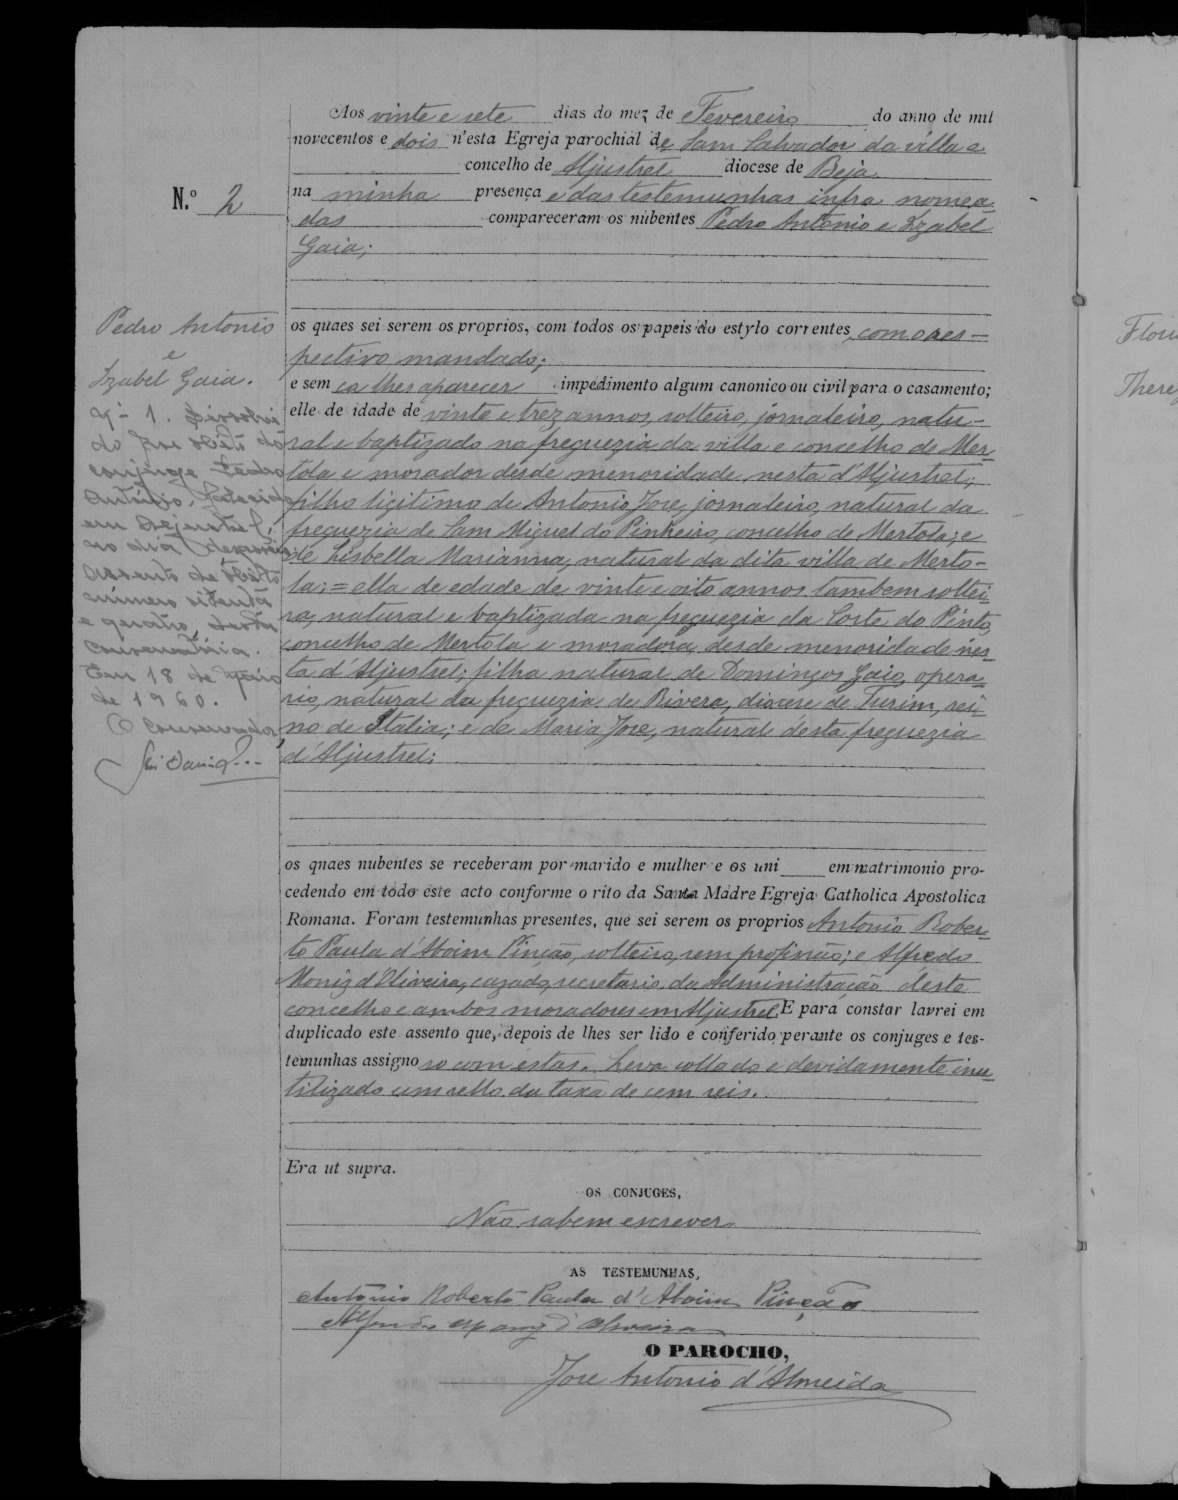 Aos vinte e sete dias do mez de Fevereiro do anno de mil
novecentos e dois n'esta Egreja parochial de Sam Salvador da villa e
concelho de Aljustrel diocese de Beja
N.º 2
na minha presença e das testemunhas infra nomea-
das compareceram os nubentes Pedro Antonio e Izabel
Gaia;
Pedro Antonio
e
Izabel Gaia.
os quaes sei serem os proprios, com todos os papeis do estylo correntes, com o res-
pectivo mandado;
e sem ca lhes aparecer impedimento algum canonico ou civil para o casamento;
elle de idade de vinte e trez annos, solteiro, jornaleiro, natu-
ral e baptizado na freguezia da villa e concelho de Mer-
tola e morador desde menoridade nesta d'Aljustrel;
filho ligitimo de Antonio Jose, jornaleiro, natural da
freguezia de Sam Miguel do Pinheiro, concelho de Mertola; e
de Lisbella Marianna, natural da dita villa de Merto-
la; = ella de edade de vinte e oito annos tambem soltei-
ra, natural e baptizada na freguezia da Corte do Pinto,
concelho de Mertola e moradora desde menoridade nes-
ta d'Aljustrel; filha natural de Domingos Gaio, opera-
rio, natural da freguezia de Rivera, diocese de Turim, rei-
no de Italia; e de Maria Jose, natural desta freguezia
d'Aljustrel;
Nº 1. Dissolvi-
do por obito do
conjuge Pedro
António, falecido
em Aljustrel,
no dia
Assento de óbito
número setenta
e quatro, desta
Conservatória.
Em 18 de Maio
de 1960.
O Conservador,
os quaes nubentes se receberam por marido e mulher e os uni em matrimonio pro-
cedendo em todo este acto conforme o rito da Santa Madre Egreja Catholica Apostolica
Romana. Foram testemunhas presentes, que sei serem os proprios Antonio Rober-
to Paula d'Aboim Pinção, solteiro, sem profissão; e Alfredo
Moniz d'Oliveira, cazado, secretario da Administração deste
concelho e ambos moradores em Aljustrel. E para constar lavrei em
duplicado este assento que, depois de lhes ser lido e conferido perante os conjuges e tes-
temunhas assigno so com estas. Leva collado e devidamente inu-
tilizado um sello da taxa de cem reis.
Era ut supra.
OS CONJUGES,
Não sabem escrever.
AS TESTEMUNHAS,
Antonio Roberto Paula d'Aboim Pinção
Alfredo Moniz d'Oliveira
O PAROCHO,
Jose Antonio d'Almeida